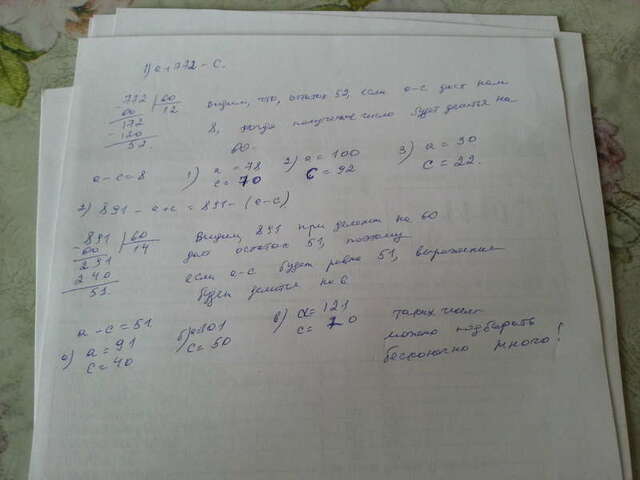 1) a+772-c.
-772 | 60
60 | 12
172
-120
52
Видим, что, остаток 52, если a-c даст нам
8, тогда полученное число будет делится на
60.
a-c=8
1) a=78
c=70
2) a=100
c=92
3) a=30
c=22.
2) 891-a+c=891-(a-c)
-891 | 60
60 | 14
291
240
51.
Видим, 891 при делении на 60
дало остаток 51, поэтому
если a-c будет равно 51, выражение
будет делится на 6
a-c=51
а) a=91
c=40
б) a=101
c=50
в) a=121
c=70
таких чисел
можно подбирать
бесконечно много!